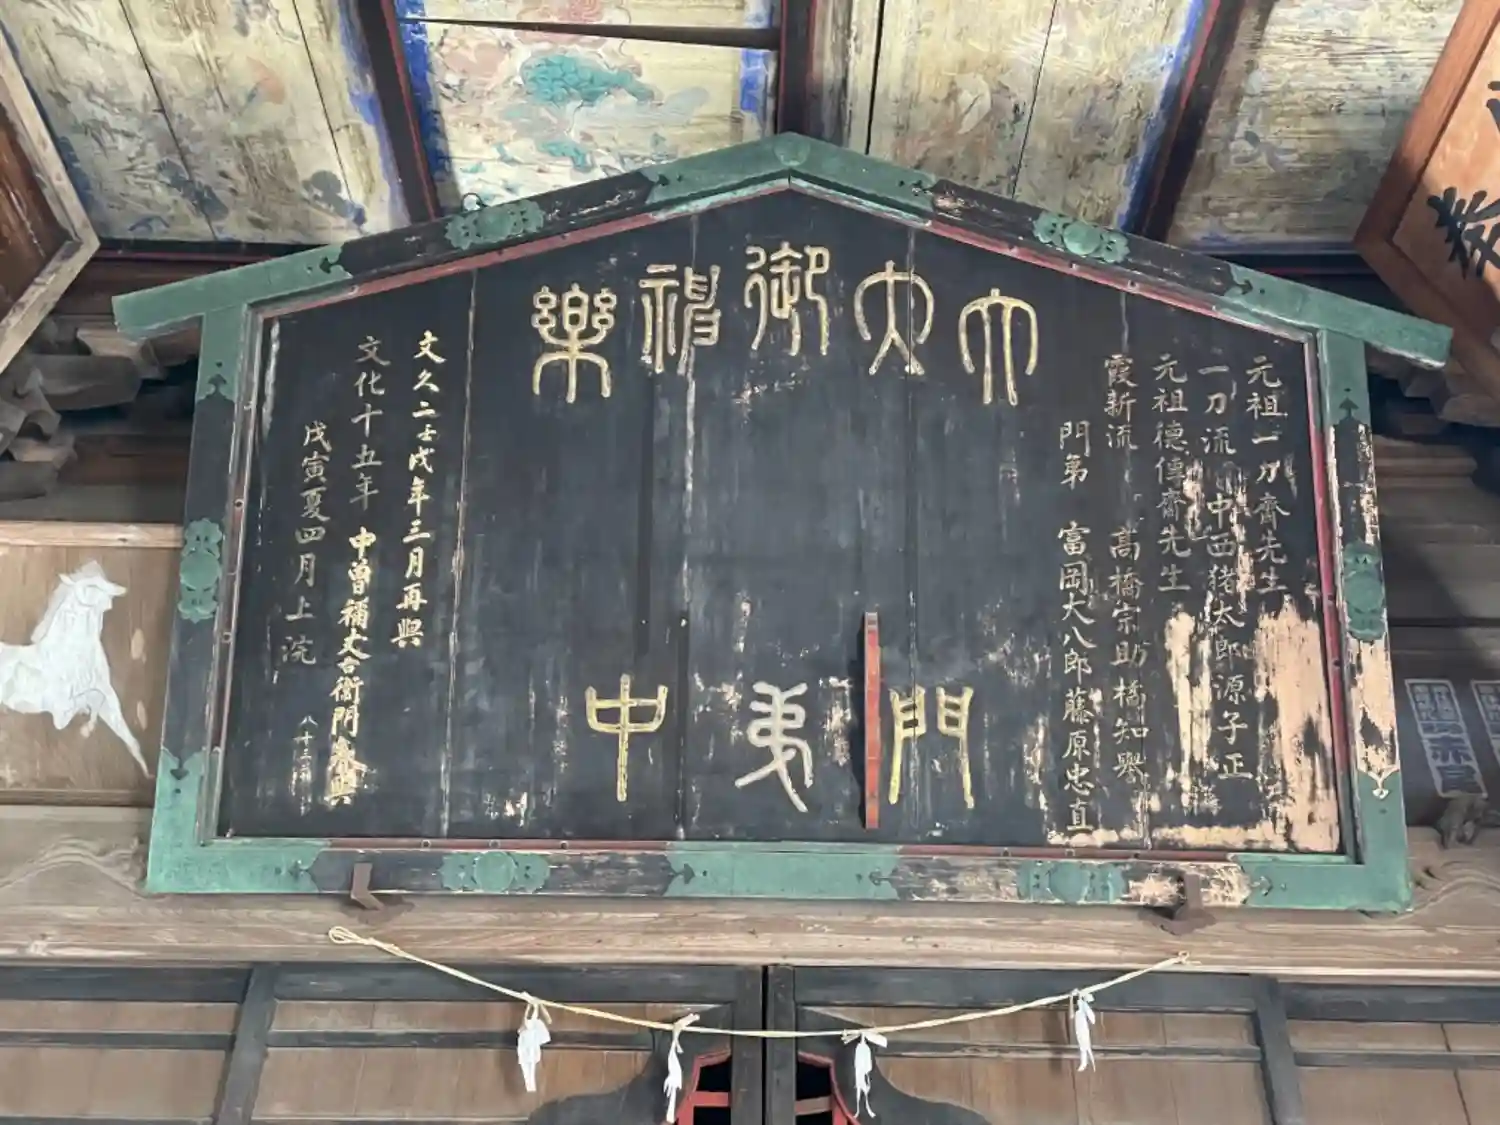 元祖一刀齋先生
一刀流 中西猪太郎源子正
元祖德傳齋先生
霞新流 高橋宗助橘知譽
門弟 富岡大八郎藤原忠直
大大御神樂
門弟中
文久二壬戌年三月再興
文化十五年 中曽補丈右衛門
戊寅夏四月上浣
奉